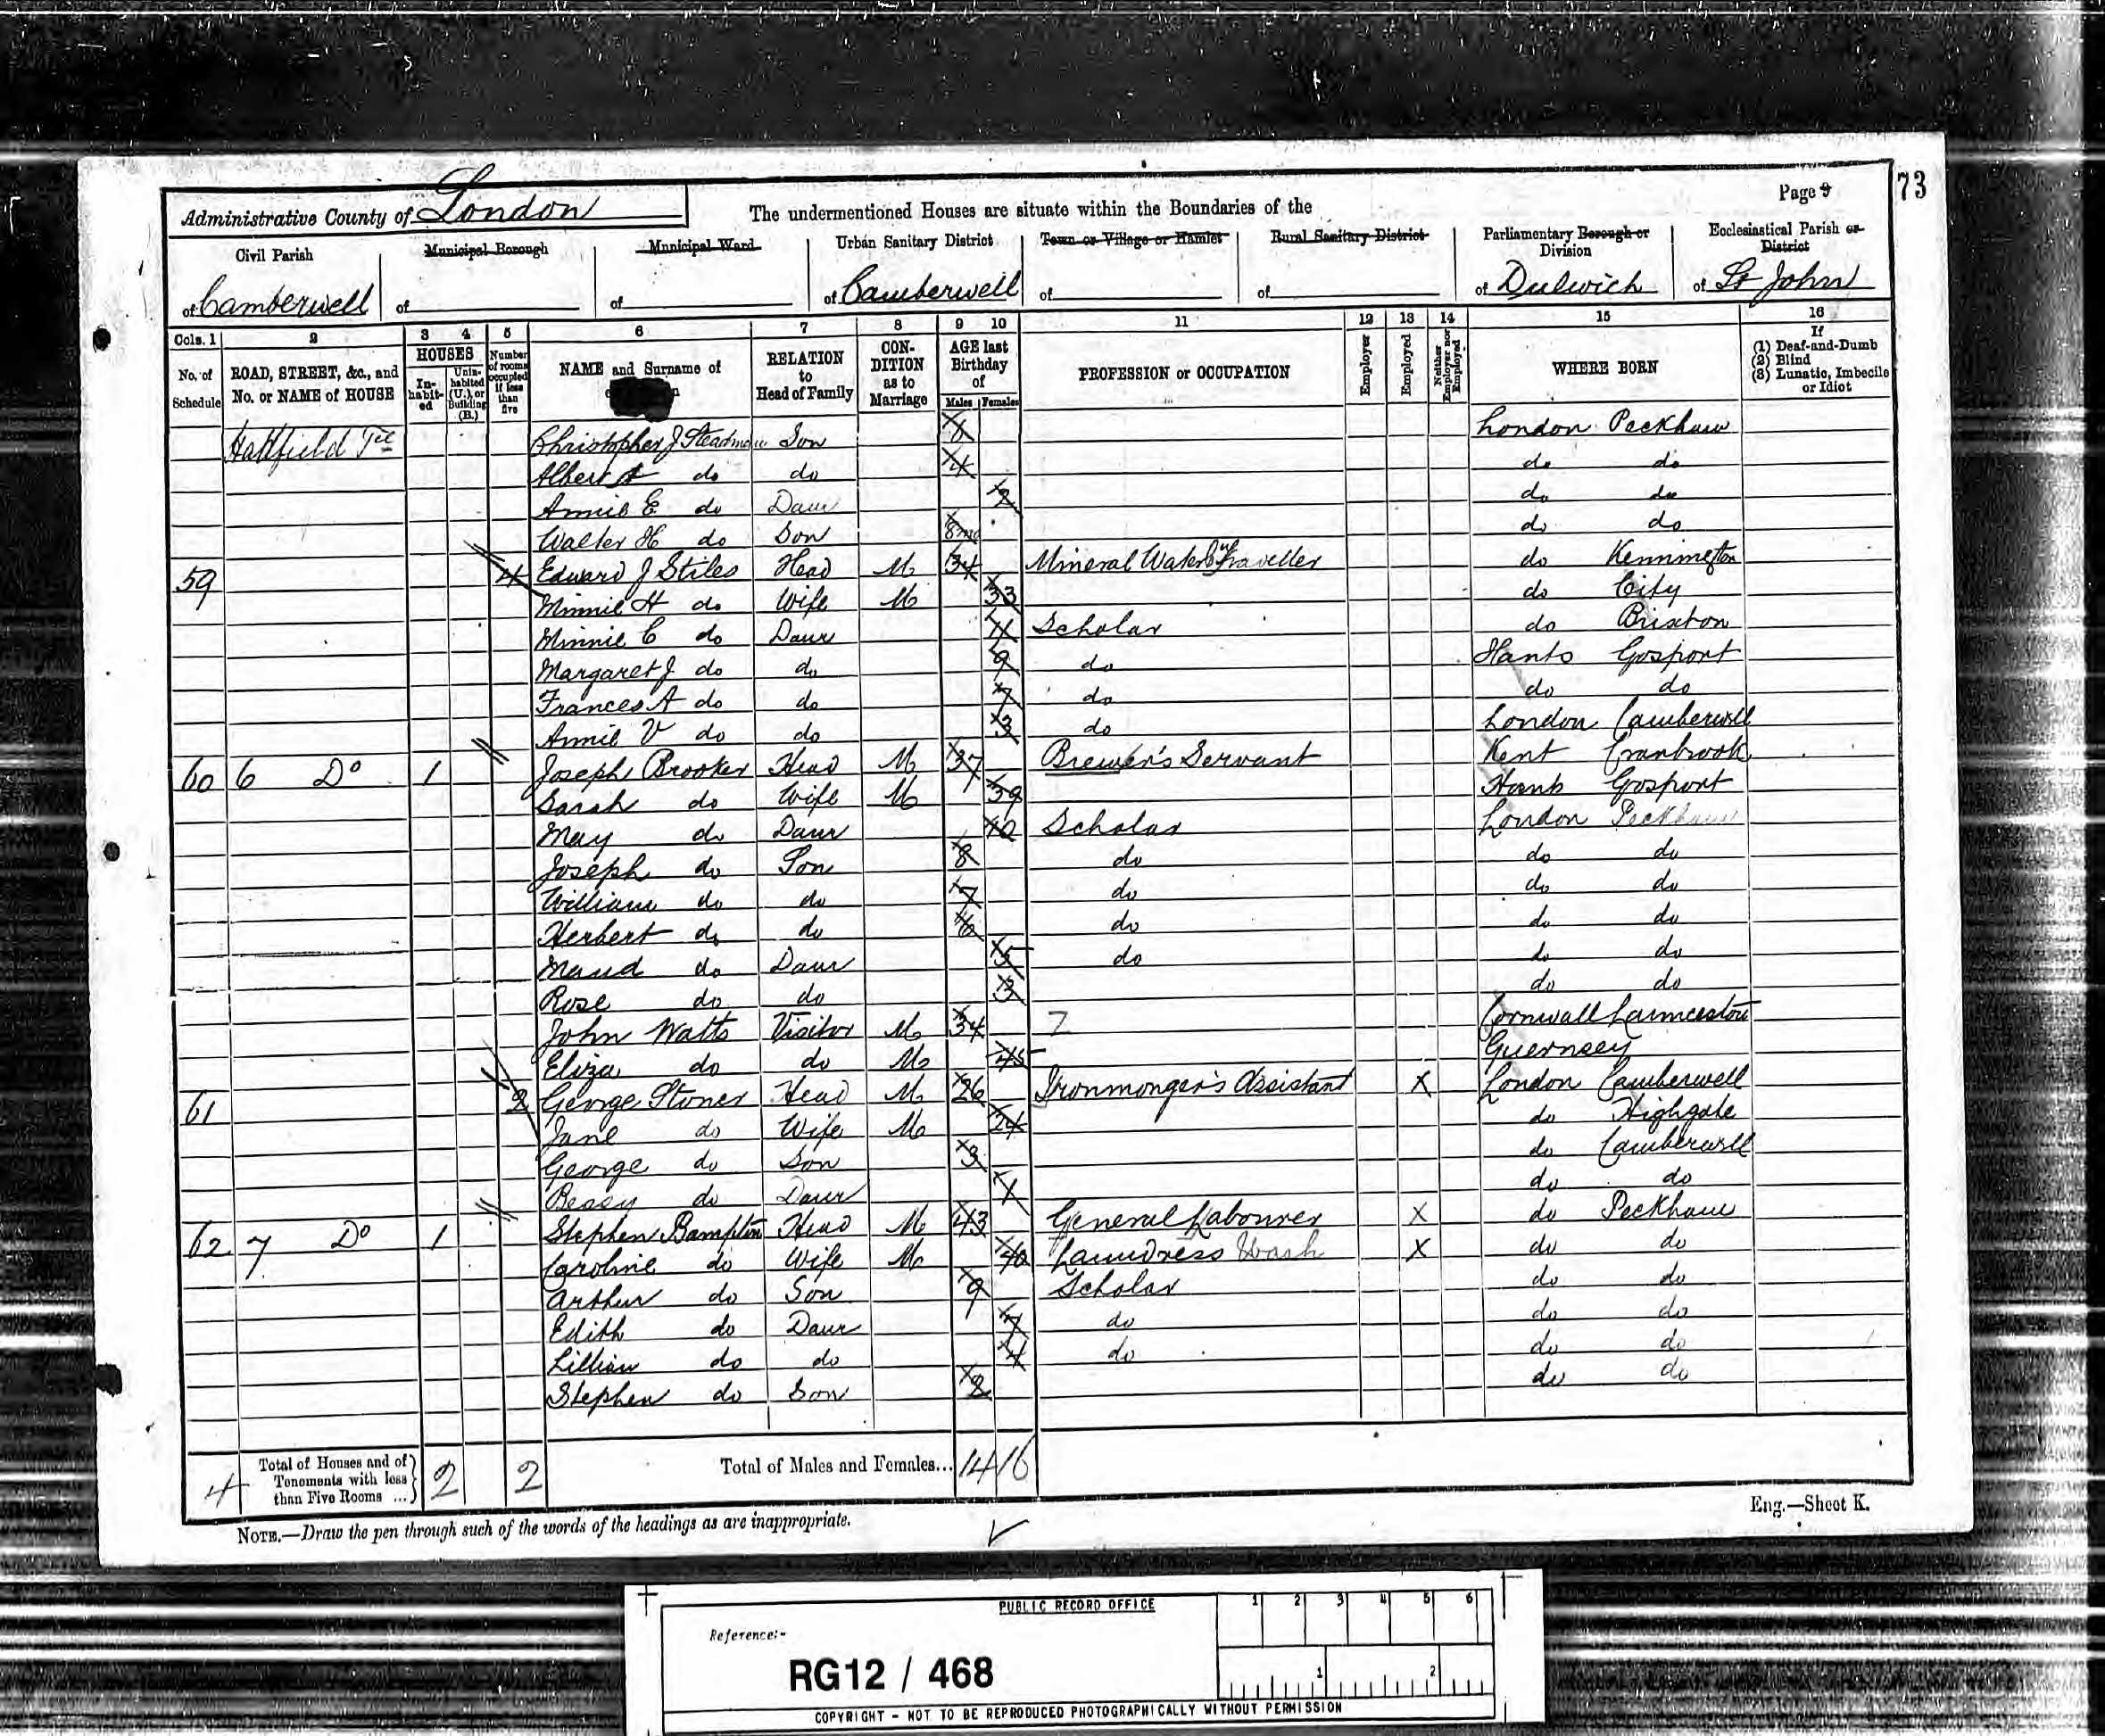 73
Page 9
Administrative County of London
The undermentioned Houses are situate within the Boundaries of the
Civil Parish
of Camberwell
Municipal Borough
of
Municipal Ward
of
Urban Sanitary District
of Camberwell
Town or Village or Hamlet
of
Rural Sanitary District
of
Parliamentary Borough or Division
of Dulwich
Ecclesiastical Parish or District
of St John
Cols. 1 2 3 4 5 6 7 8 9 10 11 12 13 14 15 16
No. of Schedule
ROAD, STREET, &c., and No. or NAME of HOUSE
HOUSES
In-habit-ed
Unin-habited (U.), or Building (B.)
Number of rooms occupied if less than five
NAME and Surname of
RELATION to Head of Family
CON-DITION as to Marriage
AGE last Birthday of
Males Females
PROFESSION or OCCUPATION
Employer
Employed
Neither Employer nor Employed
WHERE BORN
If
(1) Deaf-and-Dumb
(2) Blind
(3) Lunatic, Imbecile or Idiot
Hattfield Tce Christopher J Steadman Son London Peckham
Albert A do do 4 do do
Annie E do Daur 2 do do
Walter H do Son 8mo do do
59 4 Edward J Stiles Head M 34 Mineral Water Traveller do Kennington
Minnie H do Wife M 33 do City
Minnie C do Daur 11 Scholar do Brixton
Margaret J do do 9 do Hants Gosport
Frances A do do 7 do do do
Annie V do do 3 do London Camberwell
60 6 Do 1 Joseph Brooker Head M 37 Brewer's Servant Kent Cranbrook
Sarah do Wife M 39 Hants Gosport
May do Daur 10 Scholar London Peckham
Joseph do Son 8 do do do
William do do 7 do do do
Herbert do do 6 do do do
Maud do Daur 5 do do do
Rose do do 3 do do
John Watts Visitor M 34 Cornwall Launceston
Eliza do do M 45 Guernsey
61 2 George Stoner Head M 26 Ironmonger's Assistant X London Camberwell
Jane do Wife M 24 do Highgate
George do Son 3 do Camberwell
Bessy do Daur 1 do do
62 7 Do 1 Stephen Bampton Head M 43 General Labourer X do Peckham
Caroline do Wife M 40 Laundress Wash X do do
Arthur do Son 9 Scholar do do
Edith do Daur 7 do do do
Lillian do do 4 do do do
Stephen do Son 2 do do
4 Total of Houses and of Tenements with less than Five Rooms ... 2 2 Total of Males and Females... 14 16
NOTE.—Draw the pen through such of the words of the headings as are inappropriate.
Eng.—Sheet K.
PUBLIC RECORD OFFICE
1 2 3 4 5 6
Reference:-
RG12 / 468
1 2
COPYRIGHT - NOT TO BE REPRODUCED PHOTOGRAPHICALLY WITHOUT PERMISSION